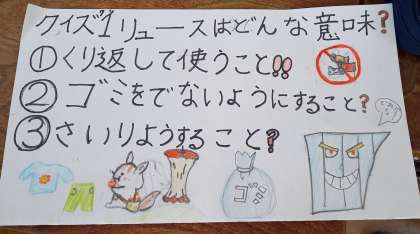 クイズ1リュースはどんな意味?
①くり返して使うこと!!
②ゴミをでないようにすること?
③さいりようすること?
ゴミ